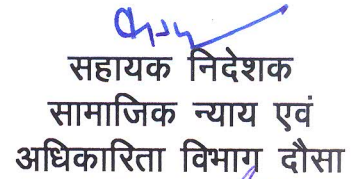 सहायक निदेशक
सामाजिक न्याय एवं
अधिकारिता विभाग दौसा